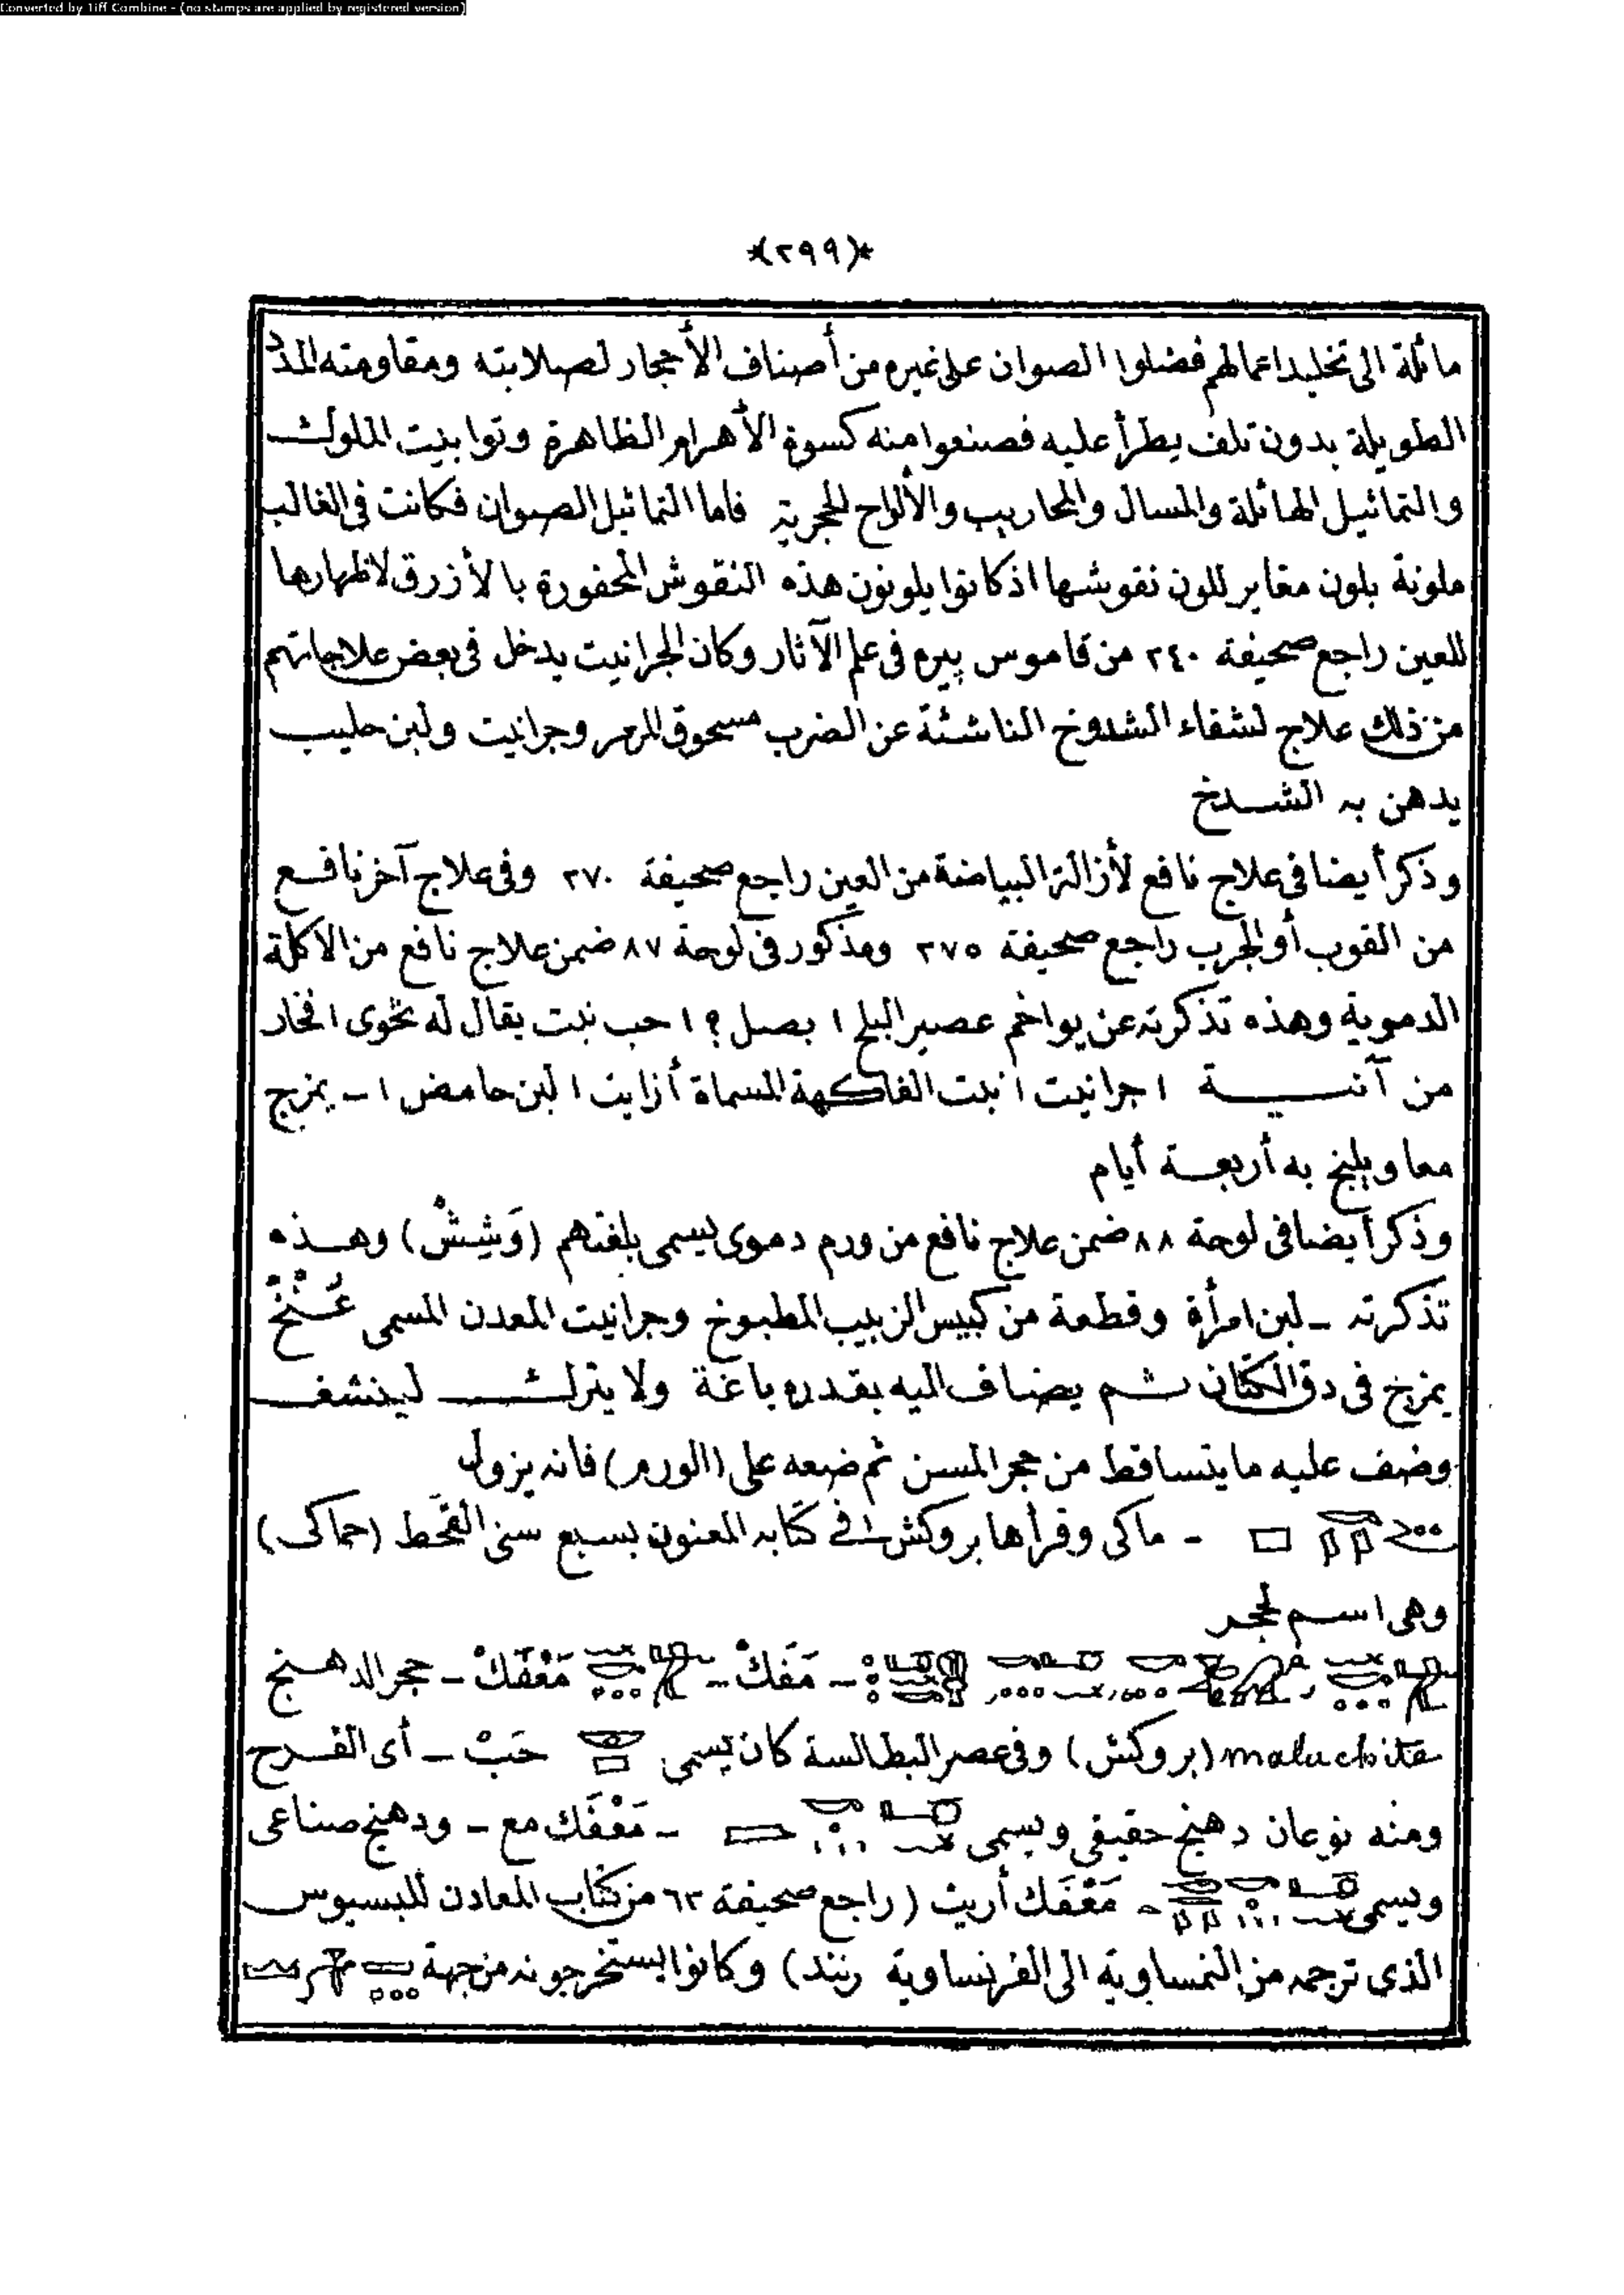 Converted by Tiff Combine - (no stamps are applied by registered version)
*(٢٩٩)*
مائلة الى تخليد اعمالهم فضلوا الصوان على غيره من أصناف الأحجار لصلابته ومقاومته المدد
الطويلة بدون تلف يطرأ عليه فصنعوا منه كسوة الأهرام الظاهرة وتوابيت الملوك
والتماثيل الهائلة والمسال والمحاريب والألواح الحجرية فاما التماثيل الصوان فكانت فى الغالب
ملونة بلون مغاير للون نقوشها اذ كانوا يلونون هذه النقوش المحفورة بالأزرق لاظهارها
للعين راجع صحيفة ٢٤٠ من قاموس پيره فى علم الآثار وكان الجرانيت يدخل فى بعض علاجاتهم
من ذلك علاج لشفاء الشدوخ الناشئة عن الضرب مسحوق المرمر وجرانيت ولبن حليب
يدهن به الشدخ
وذكر أيضا فى علاج نافع لأزالة البياضة من العين راجع صحيفة ٢٧٠ وفى علاج آخر نافع
من القوب أو الجرب راجع صحيفة ٢٧٥ ومذكور فى لوحة ٨٧ ضمن علاج نافع من الاكلة
الدموية وهذه تذكرته عن يواخم عصير البلح ١ بصل ؟ ١ حب نبت يقال له نحوى ١ فخار
من آنية ١ جرانيت ١ نبت الفاكهة المسماة أزايت ١ لبن حامض ١ - يمزج
معا ويلبخ به أربعة أيام
وذكر أيضا فى لوحة ٨٨ ضمن علاج نافع من ورم دموى يسمى بلغتهم (وَشِيشْ) وهذه
تذكرته - لبن امرأة وقطعة من كبيس الزبيب المطبوخ وجرانيت المعدن المسمى عُنْخْ
يمزج فى دق الكتان ثم يضاف اليه بقدره باغة ولا يترك لينشف
وضف عليه ما يتساقط من حجر المسن ثم ضعه على (الورم) فانه يزول
- ماكى وقرأها بروكش فى كتابه المعنون بسبع سنى القحط (حماكى)
وهى اسم لحجر
- مَفَكْ - مَعْفَكْ - حجر الدهنج
maluchite (بروكش) وفى عصر البطالسة كان يسمى حَبْ - أى الفرح
ومنه نوعان دهنج حقيقى ويسمى - مَعْفَك مع - ودهنج صناعى
ويسمى - مَعْفَك أريت (راجع صحيفة ٦٣ من كتاب المعادن للبسيوس
الذى ترجمه من النمساوية الى الفرنساوية رنند) وكانوا يستخرجونه من جهة